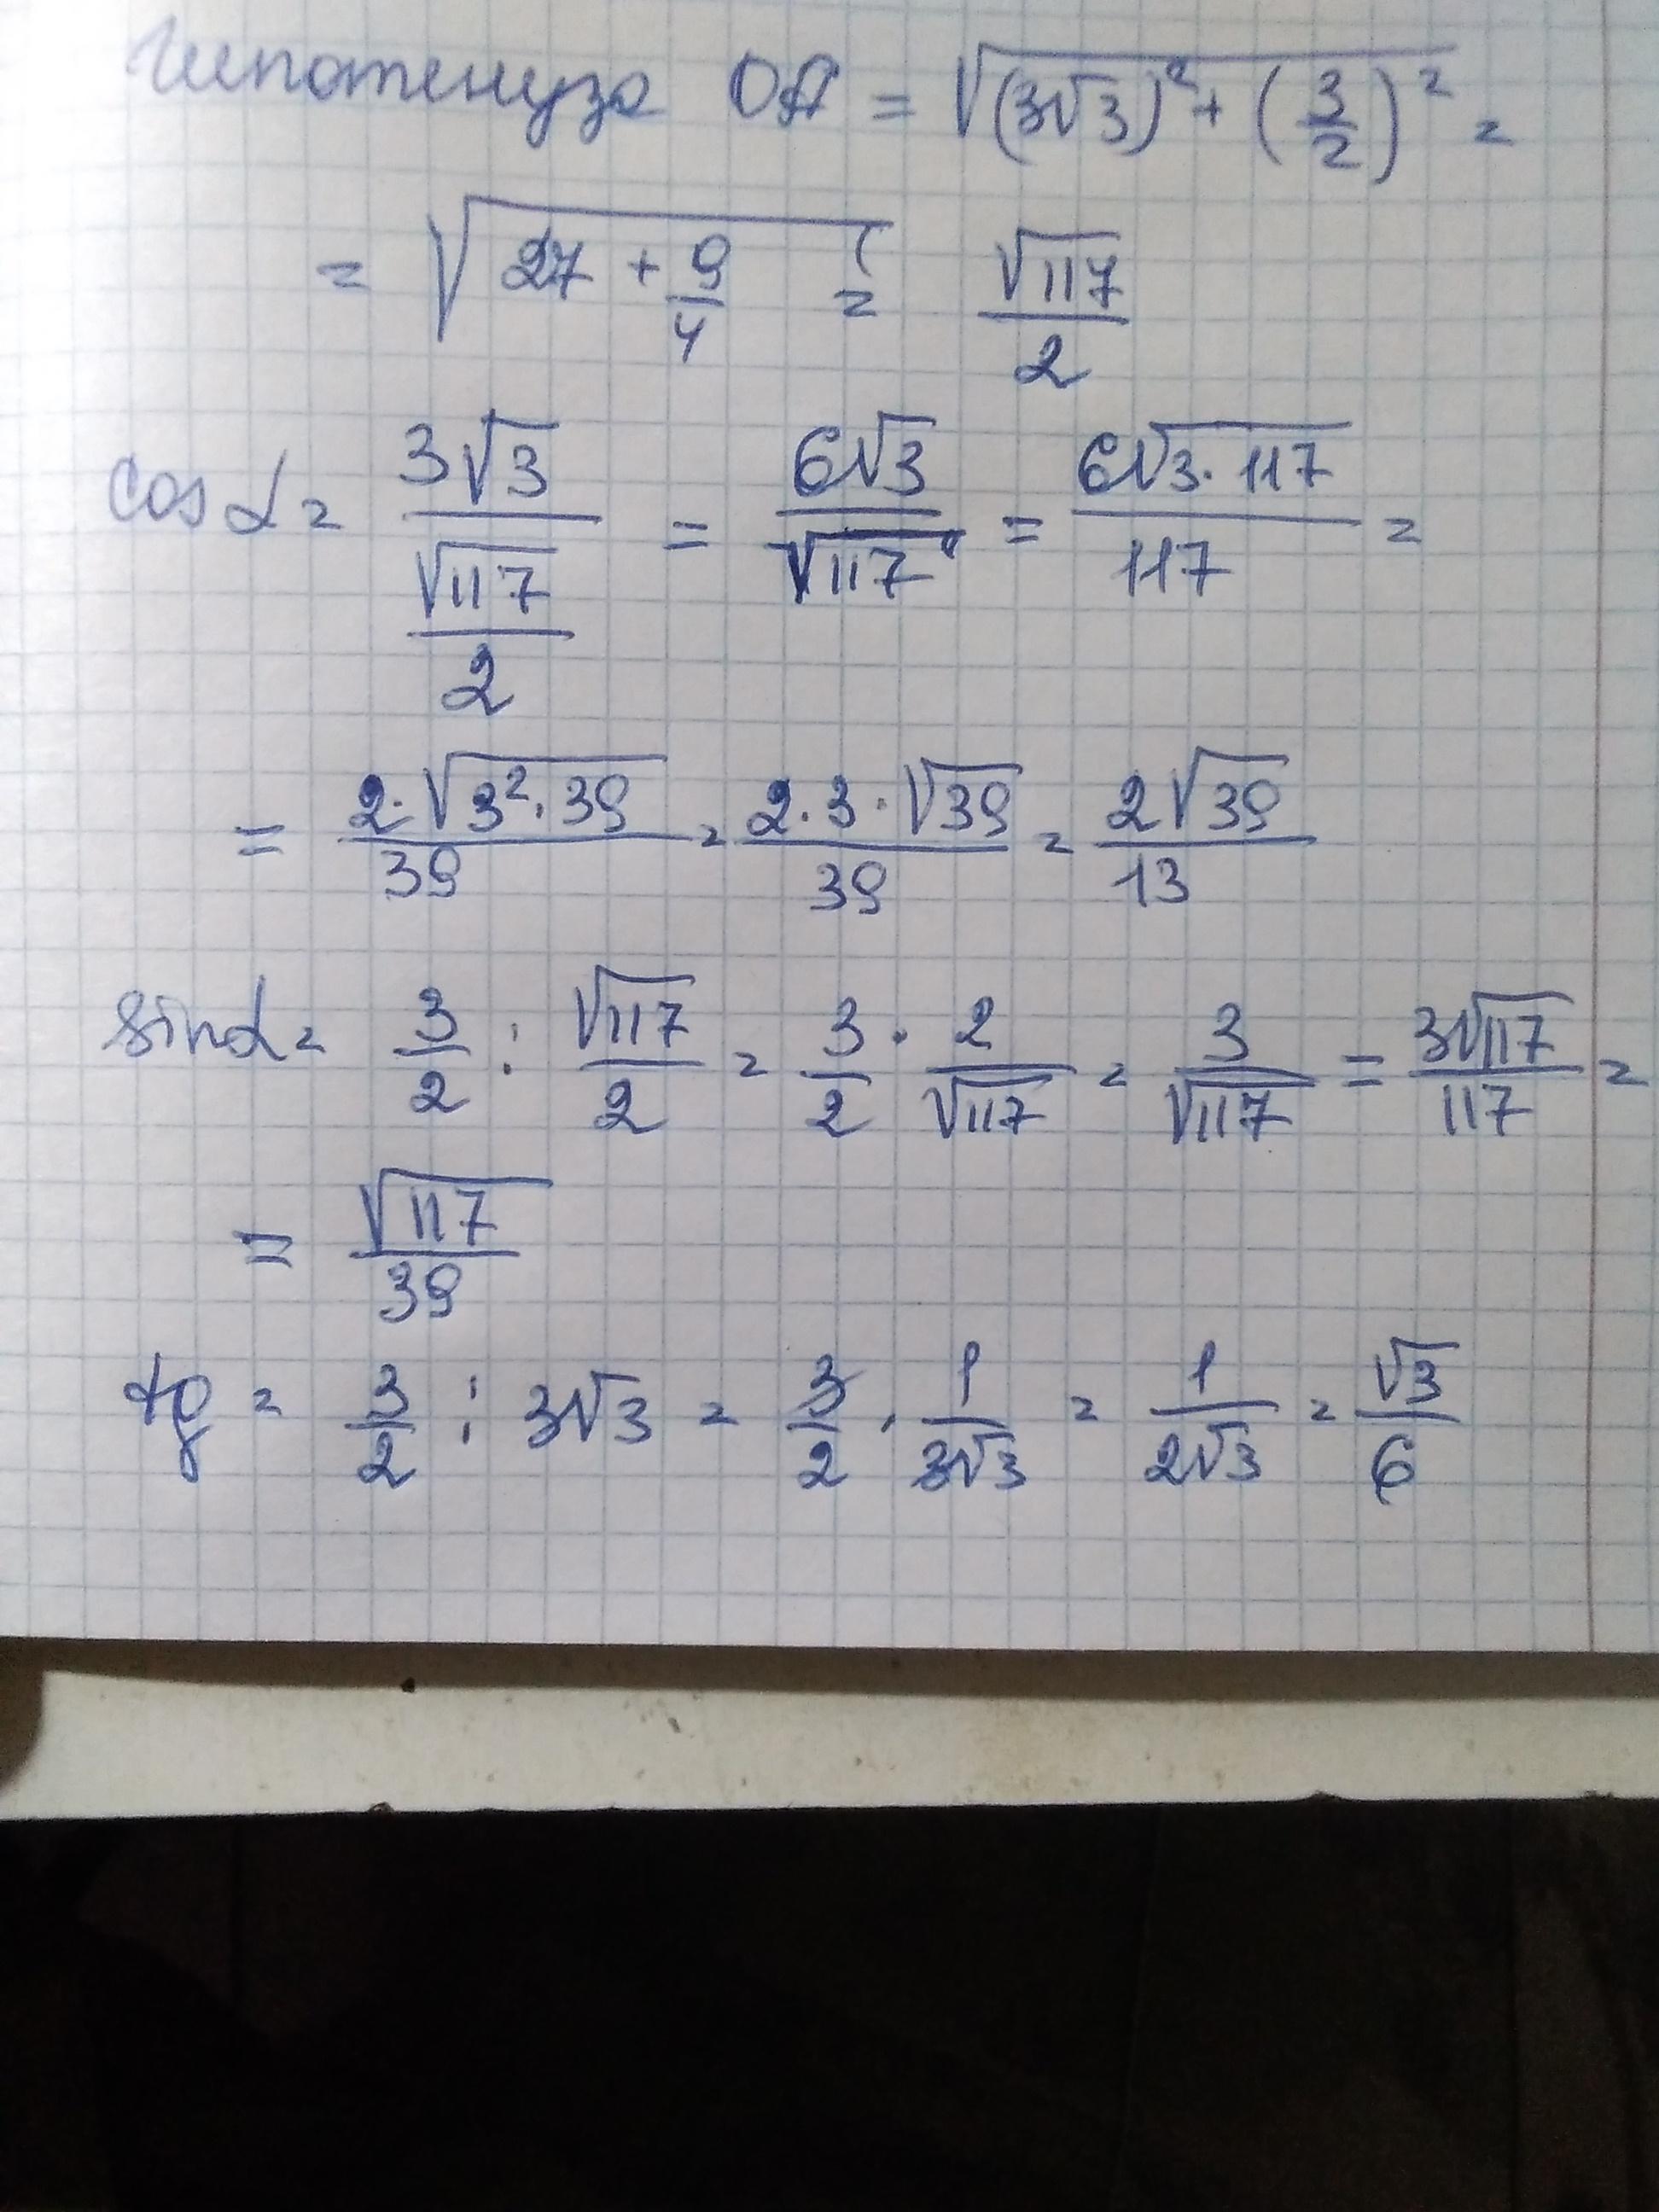 Гипотенуза OA = √((3√3)² + (3/2)²) =
= √(27 + 9/4) = √117/2
cos α = 3√3/(√117/2) = 6√3/√117 = 6√(3·117)/117 =
= 2·√(3²·39)/39 = 2·3·√39/39 = 2√39/13
sin α = 3/2 : √117/2 = 3/2 · 2/√117 = 3/√117 = 3√117/117 =
= √117/39
tg = 3/2 : 3√3 = 3/2 · 1/3√3 = 1/2√3 = √3/6